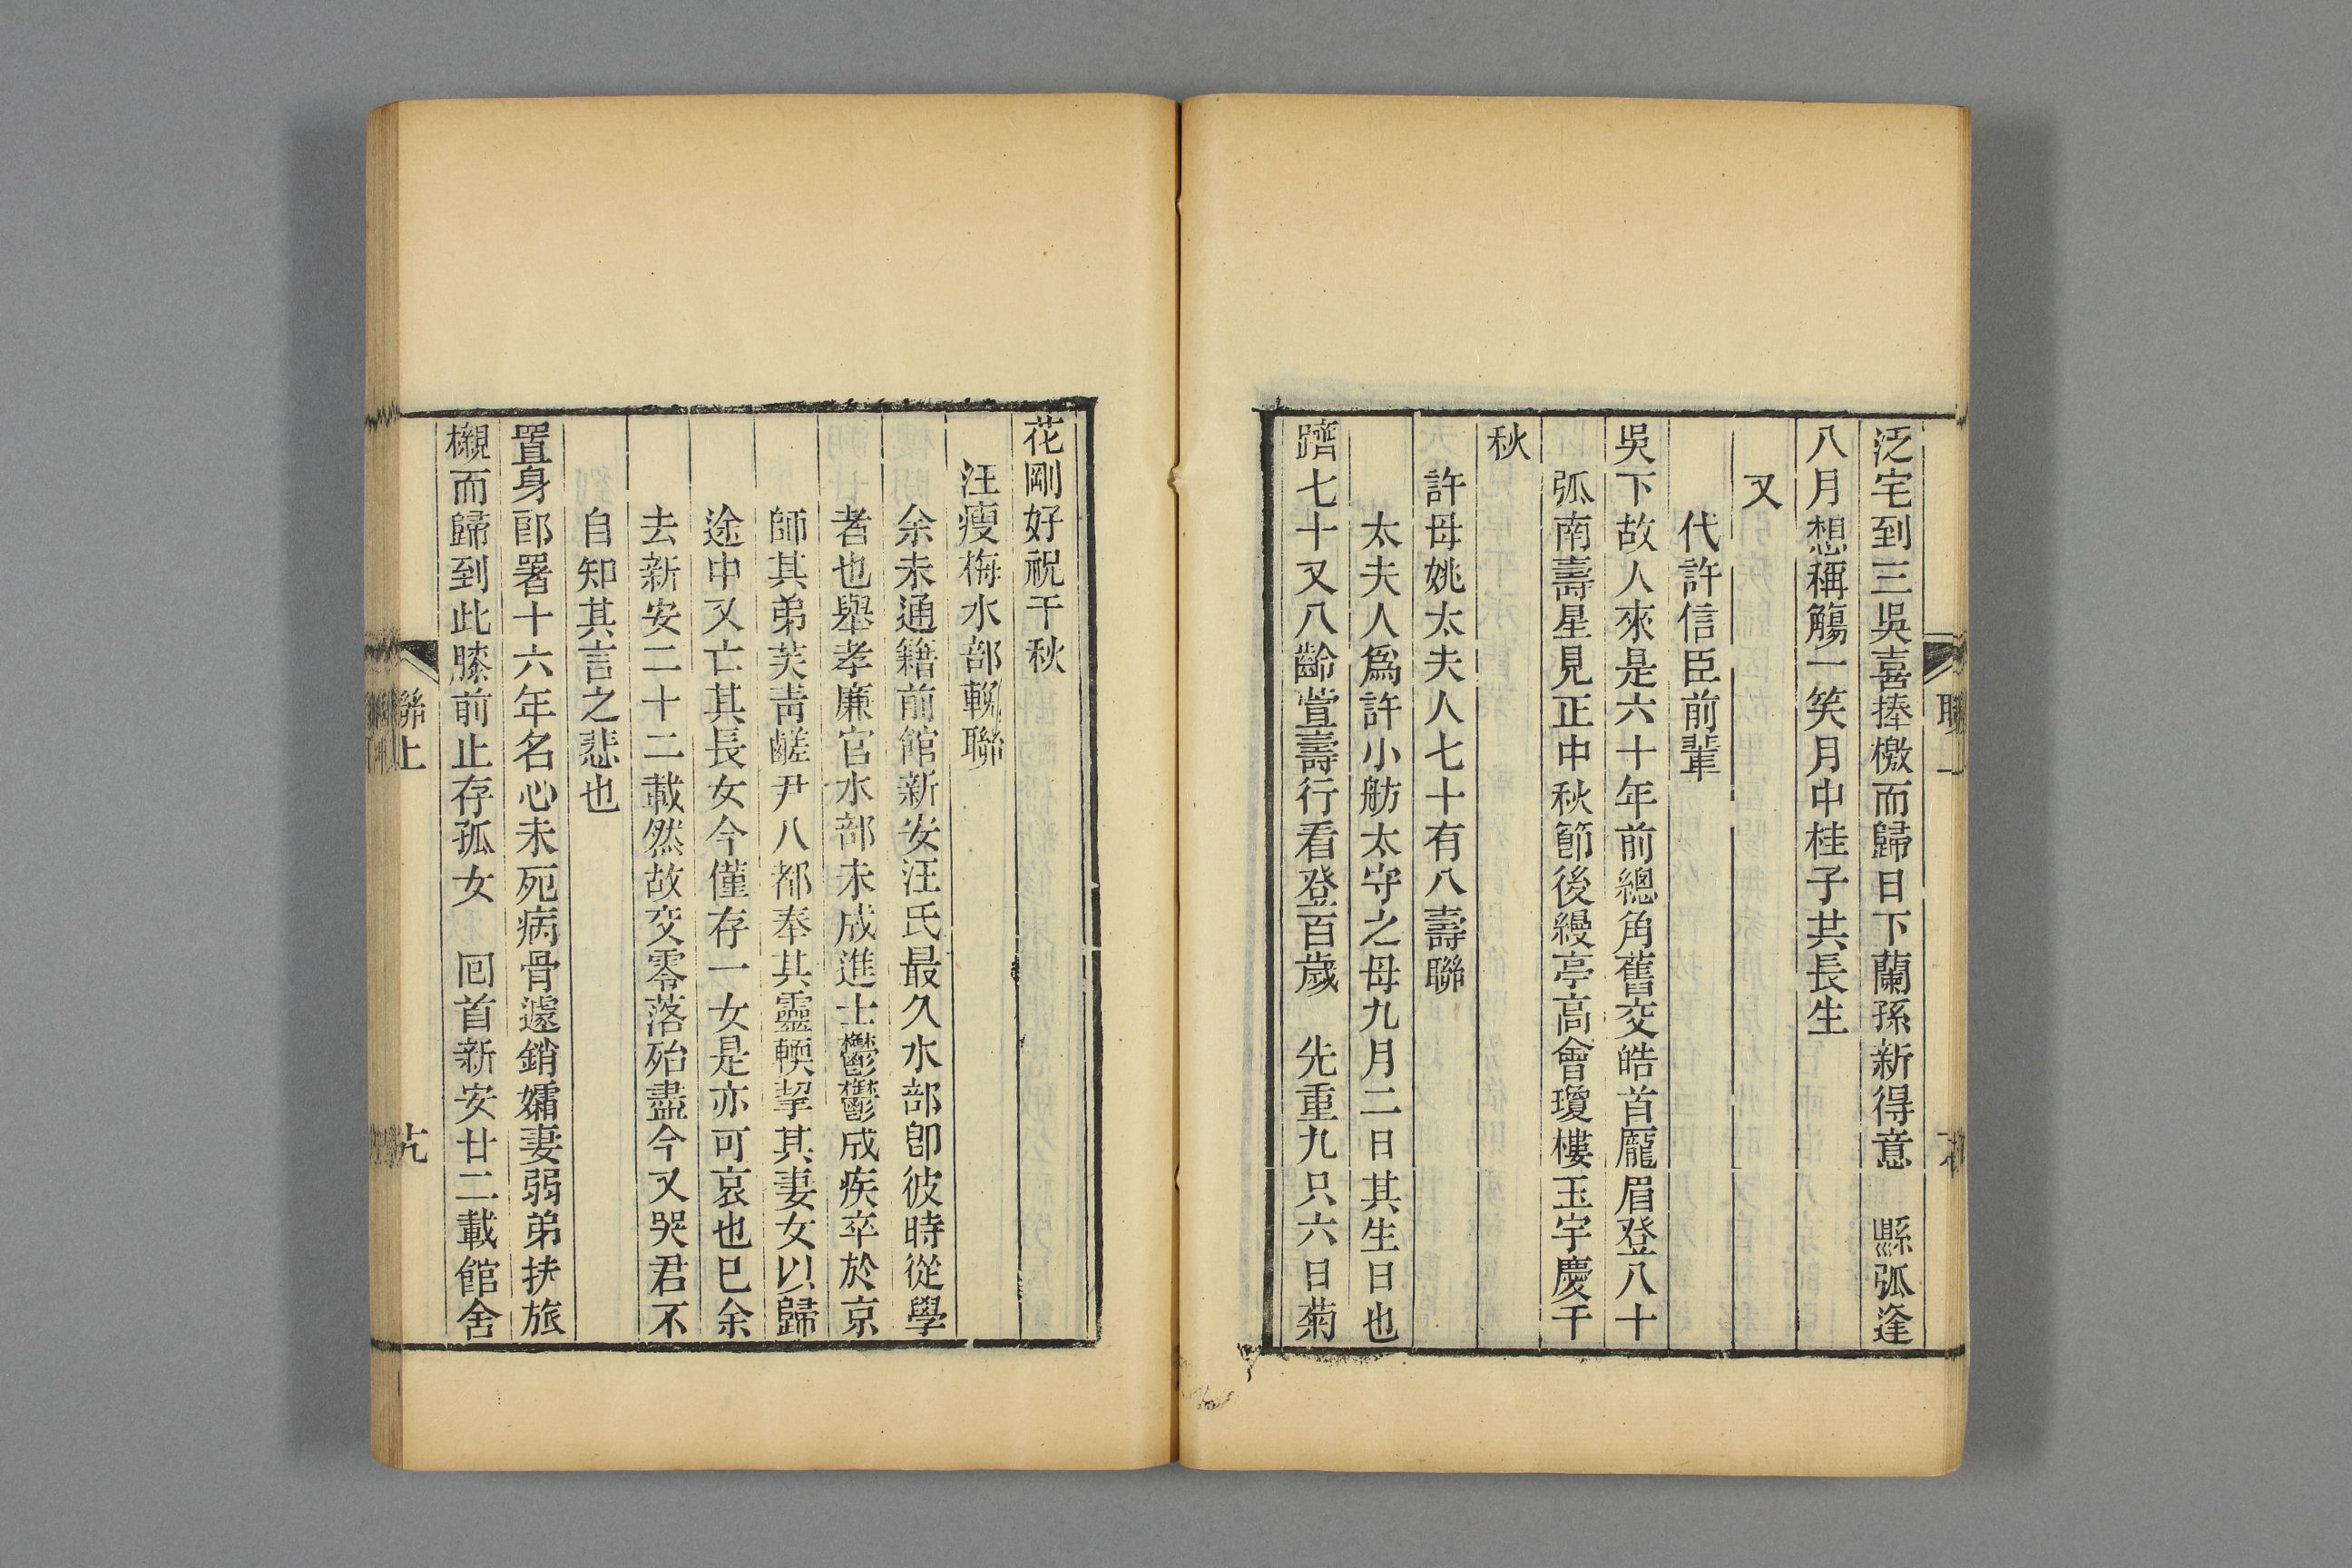 泛宅到三吳喜捧檄而歸日下蘭孫新得意　縣弧逢
八月想稱觴一笑月中桂子共長生
又
代許信臣前輩
吳下故人來是六十年前總角舊交皓首龐眉登八十
弧南壽星見正中秋節後縵亭高會瓊樓玉宇慶千
秋
許母姚太夫人七十有八壽聯
太夫人爲許小舫太守之母九月二日其生日也
躋七十又八齡萱壽行看登百歲　先重九只六日菊
花剛好祝千秋
汪瘦梅水部輓聯
余未通籍前館新安汪氏最久水部卽彼時從學
者也舉孝廉官水部未成進士鬱鬱成疾卒於京
師其弟芙靑鹺尹入都奉其靈輀挈其妻女以歸
途中又亡其長女今僅存一女是亦可哀也已余
去新安二十二載然故交零落殆盡今又哭君不
自知其言之悲也
置身郎署十六年名心未死病骨遽銷孀妻弱弟扶旅
櫬而歸到此膝前止存孤女　回首新安廿二載館舍
聯上